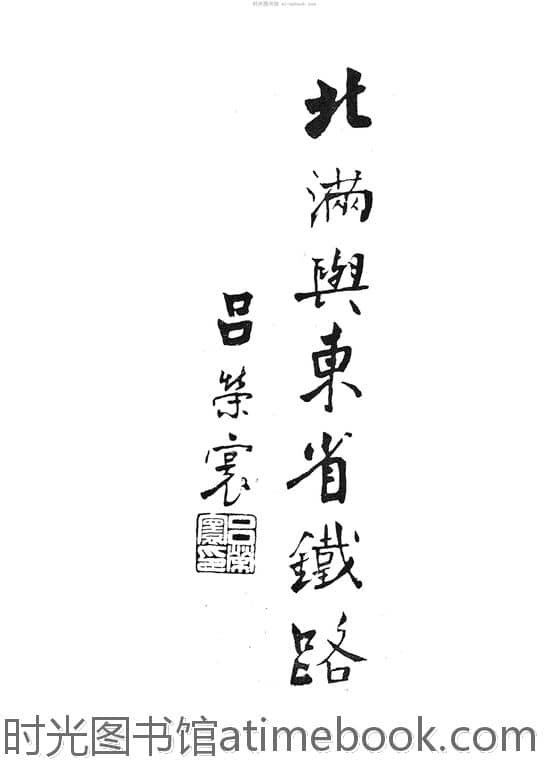 时光图书馆 atimebook.com
北滿與東省鐵路
呂榮寰
呂榮寰印
时光图书馆atimebook.com